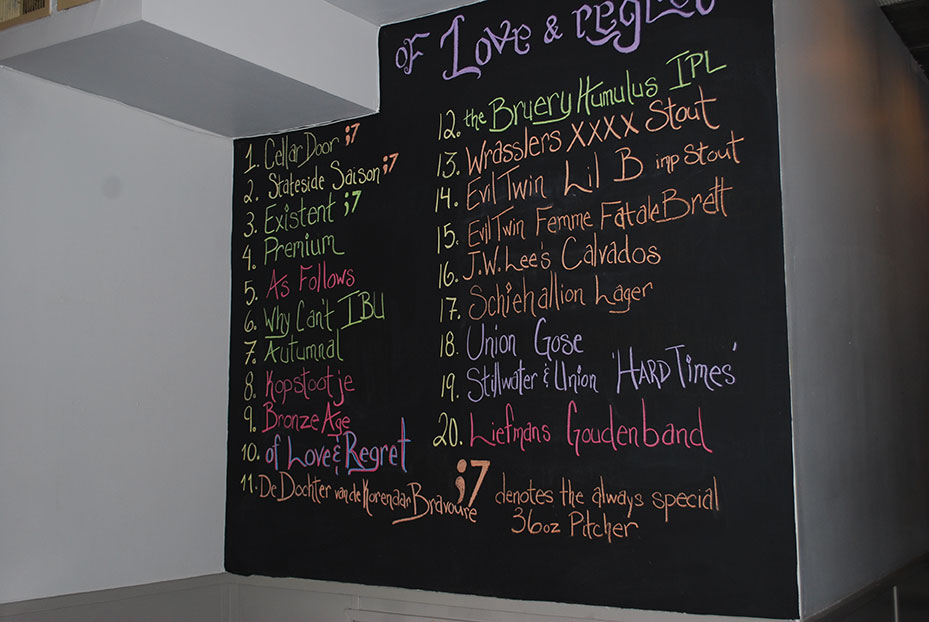 of Love & regret
1. Cellar Door ;7
2. Stateside Saison ;7
3. Existent ;7
4. Premium
5. As Follows
6. Why Can't IBU
7. Autumnal
8. Kopstootje
9. Bronze Age
10. of Love & Regret
11. De Dochter van de Korenaar Bravoure
12. the Bruery Humulus IPL
13. Wrasslers XXXX Stout
14. Evil Twin Lil B imp Stout
15. Evil Twin Femme Fatale Brett
16. J.W. Lee's Calvados
17. Schiehallion Lager
18. Union Gose
19. Stillwater & Union 'HARD Times'
20. Liefmans Goudenband
;7 denotes the always special
36oz Pitcher